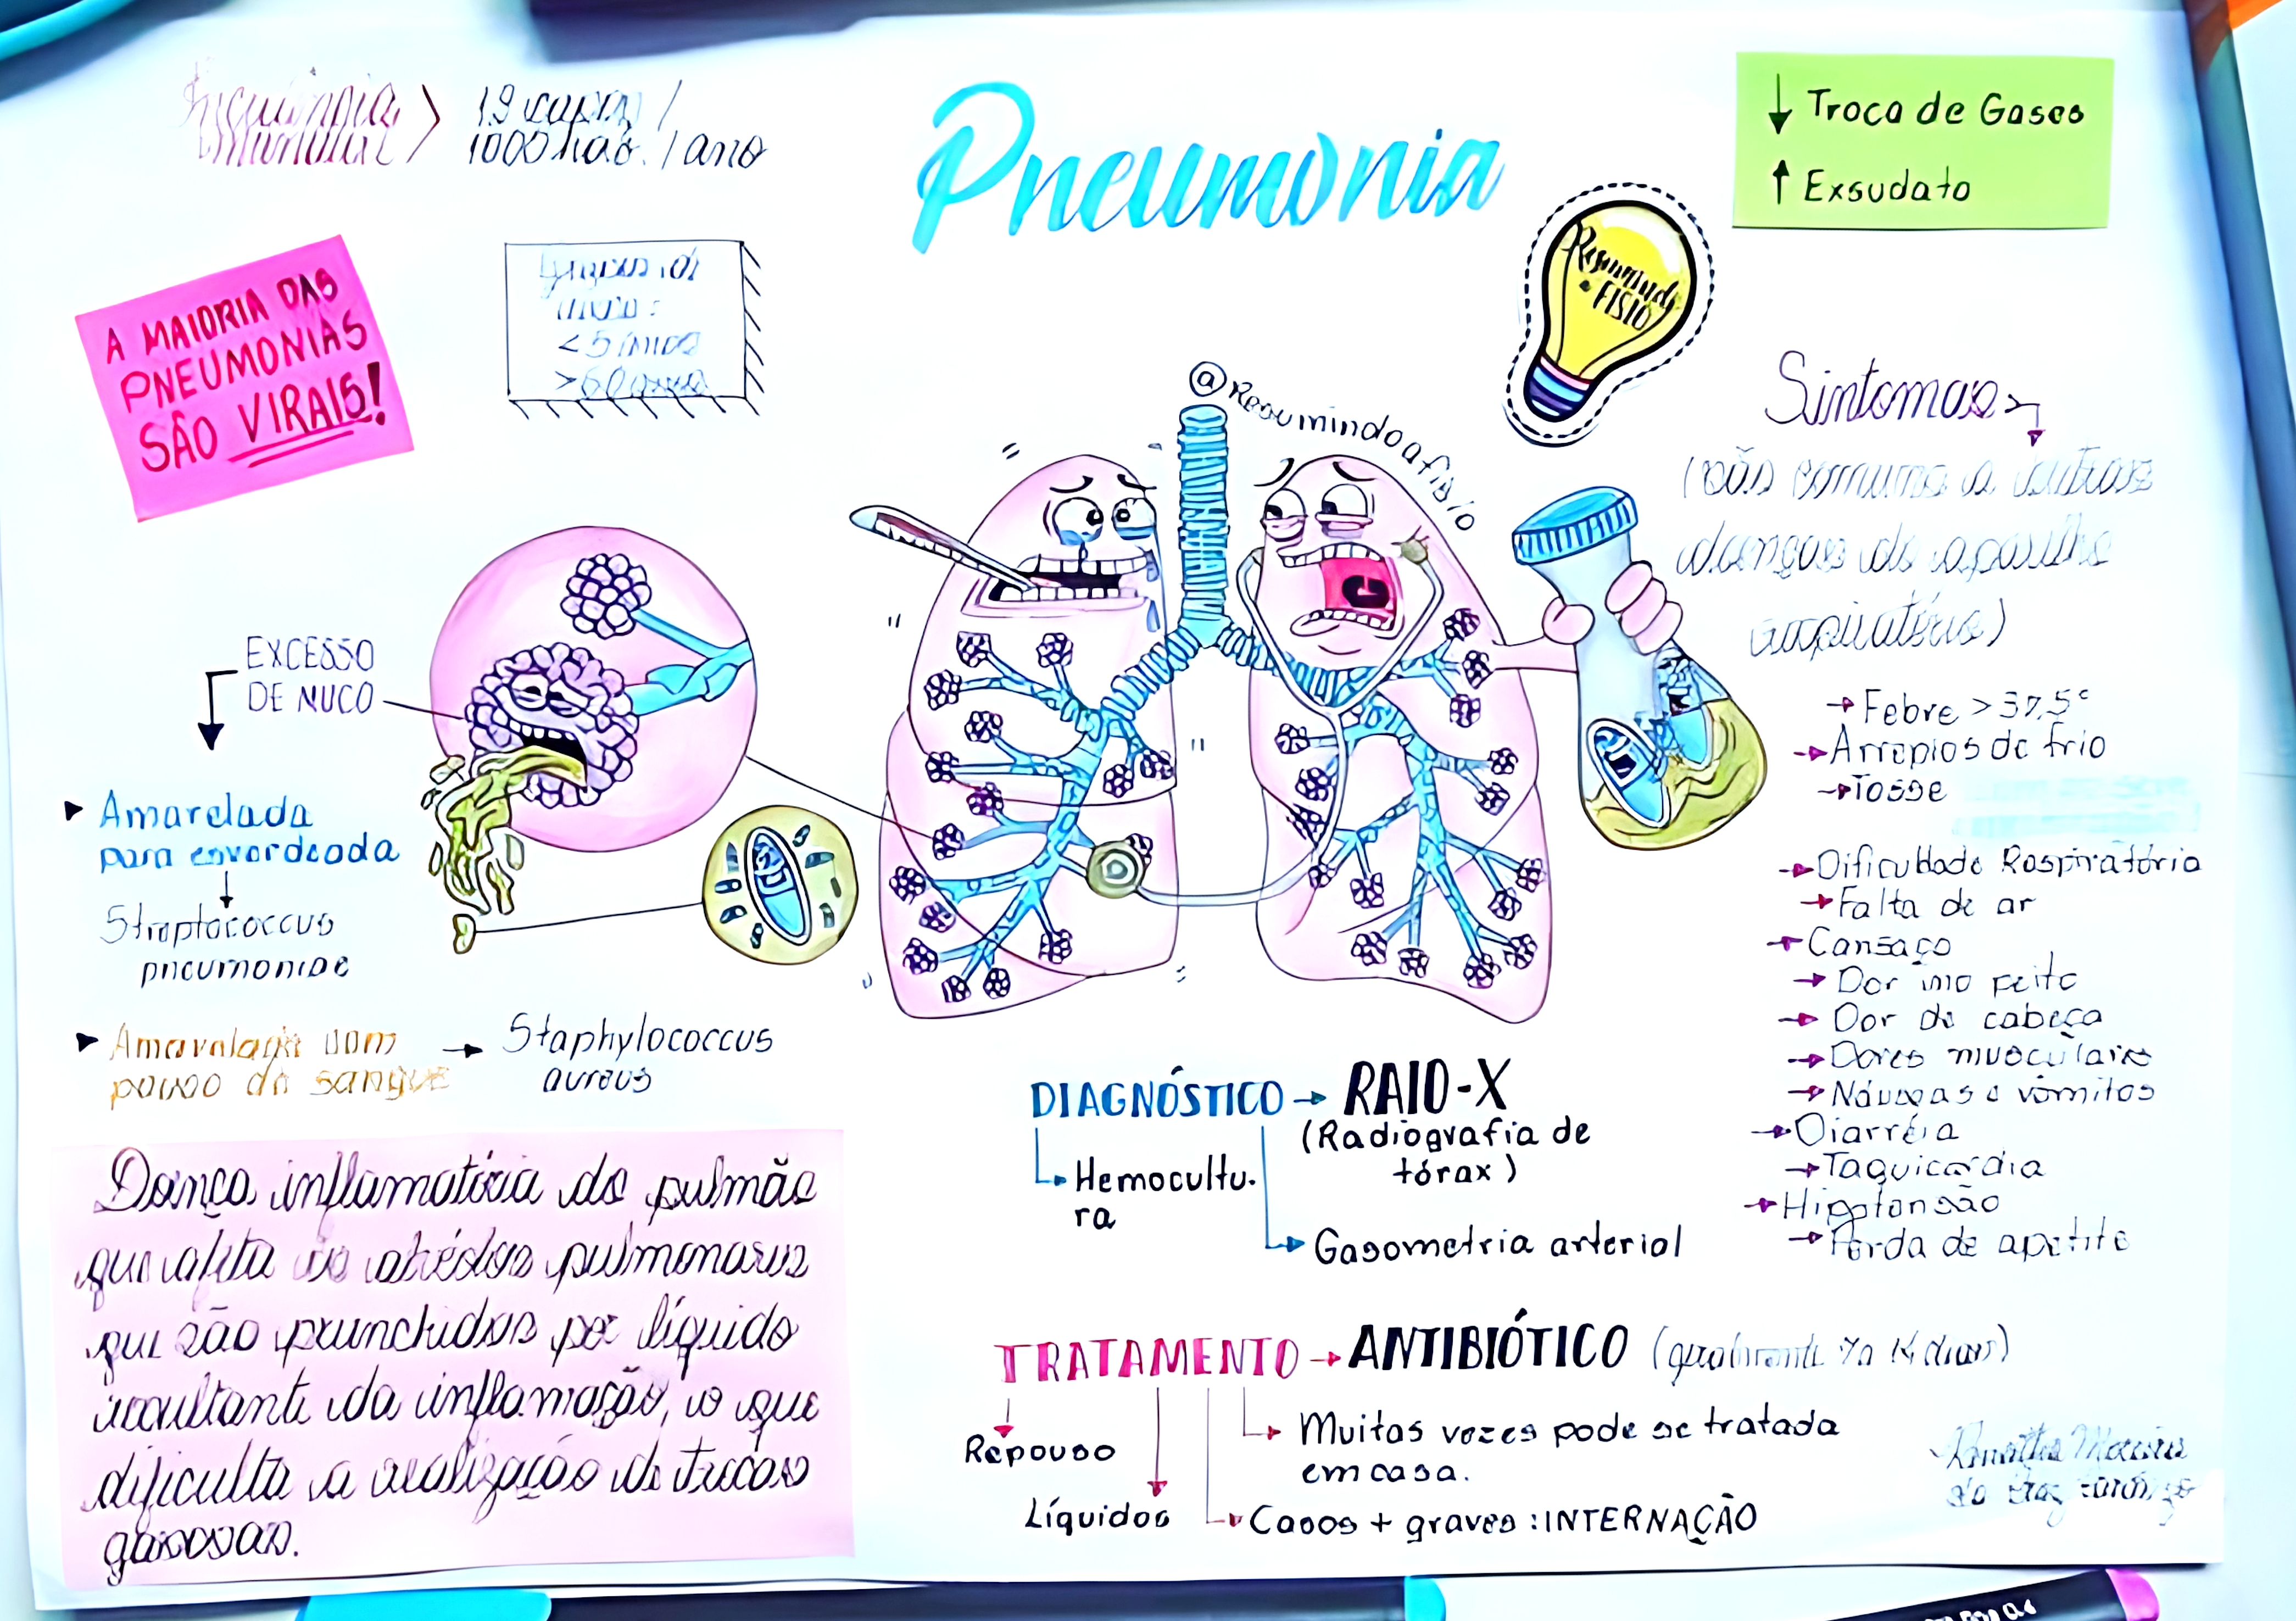 Pneumonia
1000 hab. / ano
↓ Troca de Gases
↑ Exsudato
A MAIORIA DAS
PNEUMONIAS
SÃO VIRAIS!
<5
>60
Resumindo
a FISIO
@Resumindoafisio
Sintomas
(são comuns a outras
doenças do aparelho
respiratório)
→ Febre > 37,5°
→ Arrepios de frio
→ Tosse
→ Dificuldade Respiratória
→ Falta de ar
→ Cansaço
→ Dor no peito
→ Dor de cabeça
→ Dores musculares
→ Náuseas e vômitos
→ Diarréia
→ Taquicardia
→ Hipotensão
→ Perda de apetite
EXCESSO
DE MUCO
Amarelada
para esverdeada
Streptococcus
pneumoniae
Amarelada com
pouco de sangue → Staphylococcus
aureus
Doença inflamatória do pulmão
que afeta os alvéolos pulmonares
que são preenchidos por líquido
resultante da inflamação, o que
dificulta a realização de trocas
gasosas.
DIAGNÓSTICO → RAIO-X
(Radiografia de
tórax)
Hemocultu.
ra
Gasometria arterial
TRATAMENTO → ANTIBIÓTICO (geralmente 7 a 14 dias)
Repouso
Líquidos
Muitas vezes pode se tratada
em casa.
Casos + graves : INTERNAÇÃO